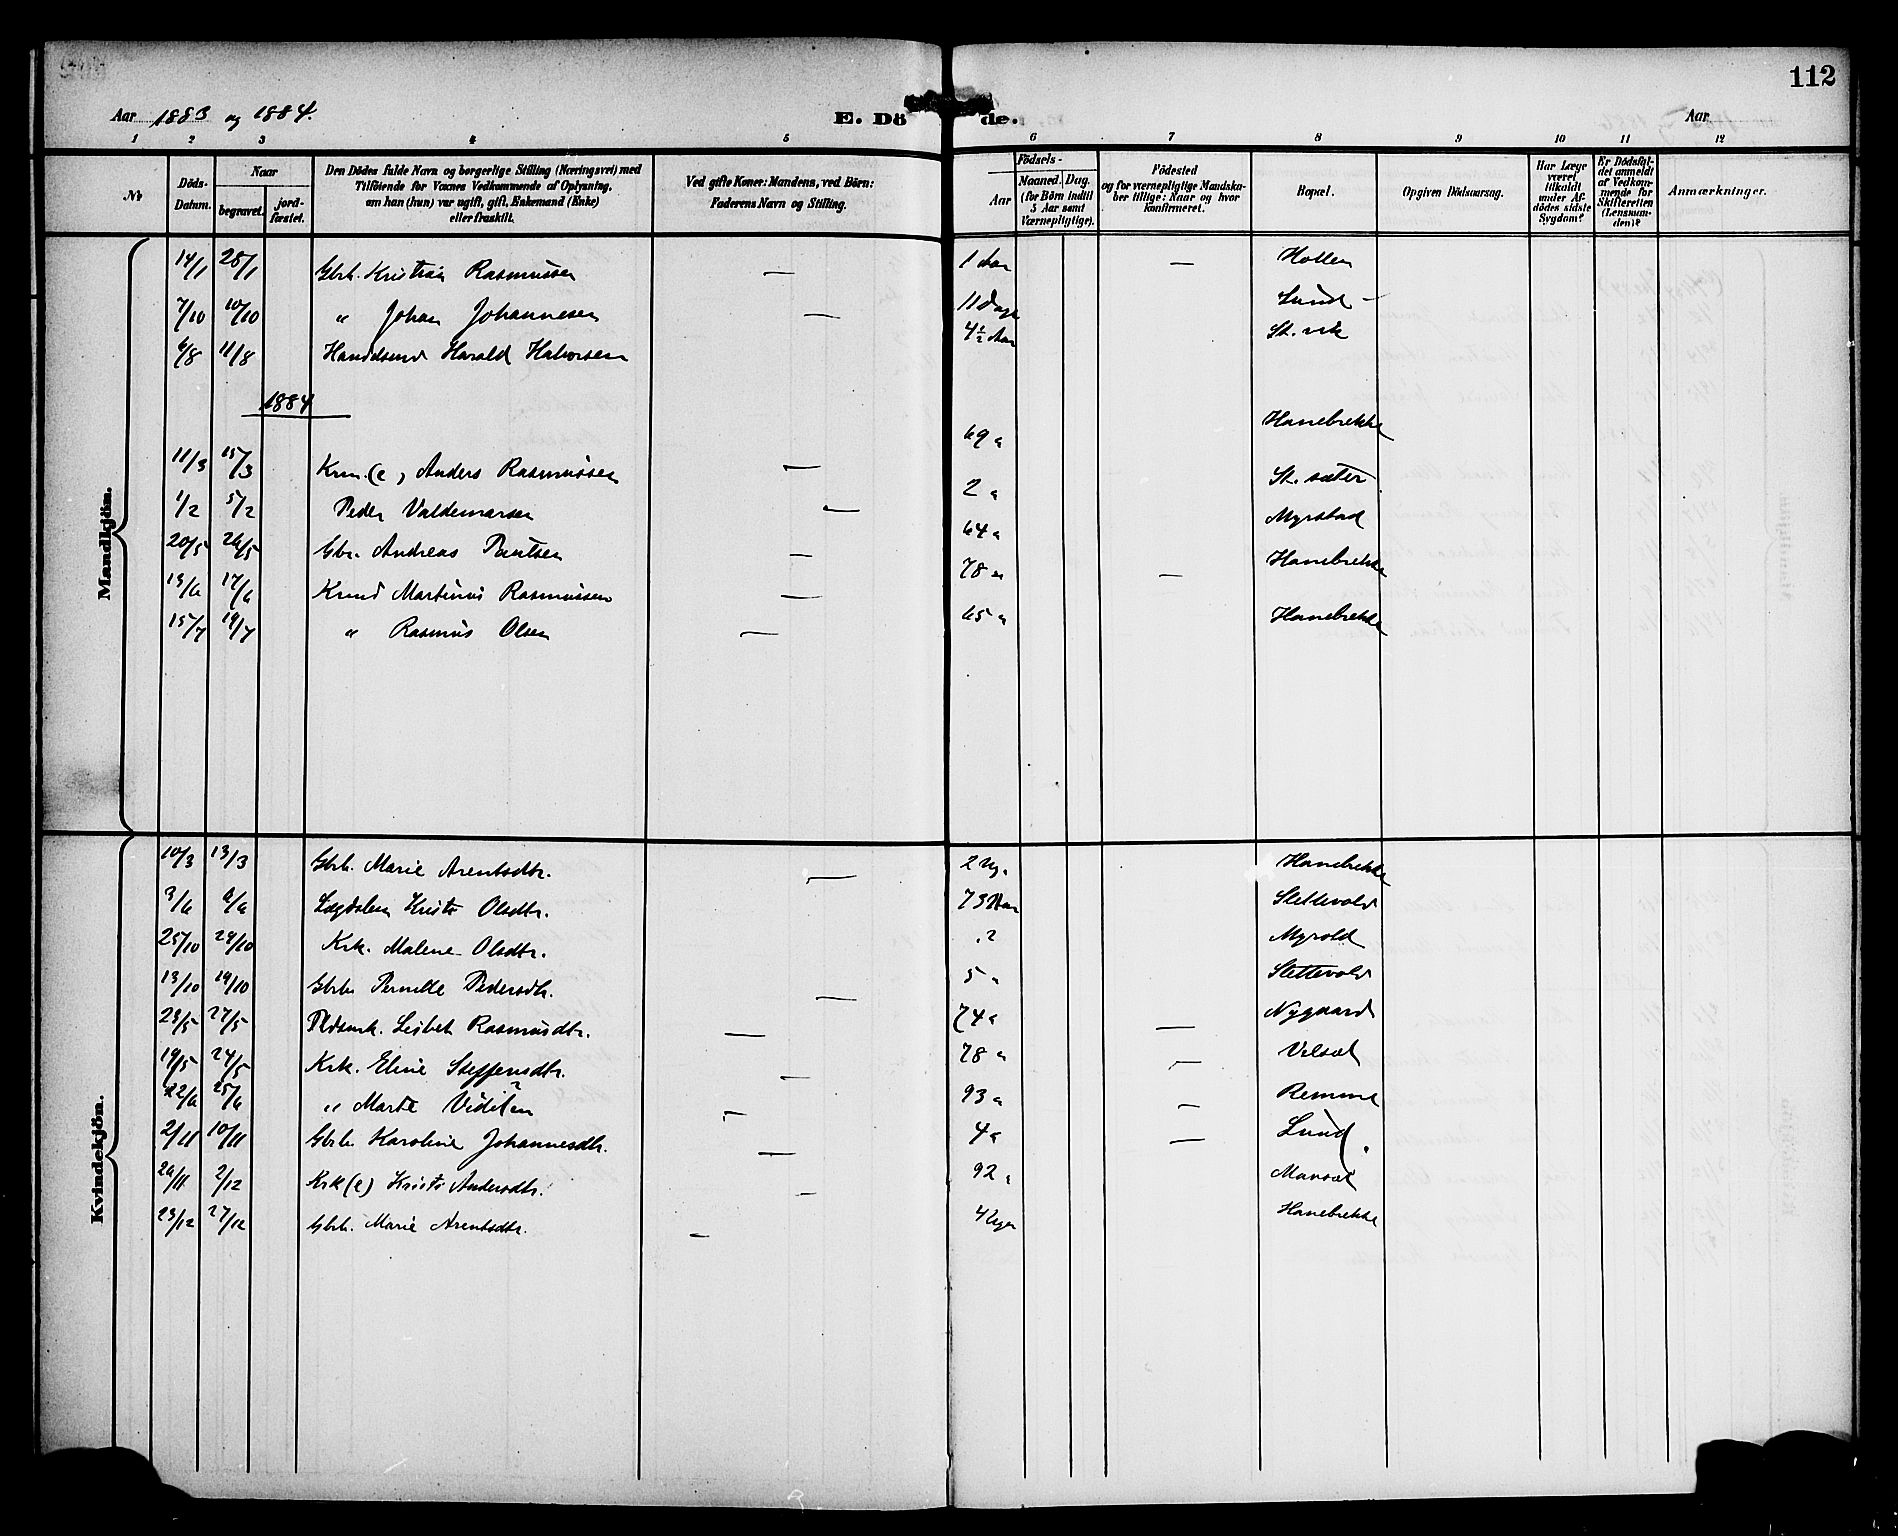 112
Aar 1883 og 1884.
E. Dö de.
Aar
1 2 3 4 5 6 7 8 9 10 11 12
No
Döds-Datum.
Naar
begravet.
jord-fæstet.
Den Dödes fulde Navn og borgerlige Stilling (Næringsvei) med
Tilföiende for Voxnes Vedkommende af Oplysning,
om han (hun) var ugift, gift, Enkemand (Enke)
eller fraskilt.
Ved gifte Koner: Mandens, ved Börn:
Faderens Navn og Stilling.
Födsels-
Aar
Maaned. Dag.
(for Börn indtil
5 Aar samt
Værnepligtige).
Födested
og for værnepligtige Mandska-
ber tillige: Naar og hvor
konfirmeret.
Bopæl.
Opgiven Dödsaarsag.
Har Læge
været
tilkaldt
under Af-
dödes sidste
Sygdom?
Er Dödsfal-
det anmeldt
af Vedkom-
mende for
Skifteretten
(Lensman-
den)?
Anmærkninger.
Mandkjön.
14/1 28/1 Gbrb. Kristian Rasmussen — 1 Aar — Hollen
7/10 10/10 " Johan Johannesen — 11 Dage Lund
6/8 11/8 Harald Halvorsen 4 1/2 Aar St. vik
1884
11/3 15/3 Krm. (e) Anders Rasmussen — 69 a Hanebrekke
1/2 5/2 Peder Valdemarsen — 2 a St. sæter
20/5 26/5 Gbr. Andreas Paulsen — 64 a Myrstad
13/6 17/6 Krmd Martinus Rasmussen — 78 a — Hanebrekke
15/7 19/7 " Rasmus Olsen — 65 a Hanebrekke
Kvindekjön.
10/3 13/3 Gbrb. Marie Arentsdtr. — 2 Ug. Hanebrekke
3/6 6/6 Lægdslem Kristi Olsdtr. 73 Aar Slettevold
25/10 29/10 Krk. Malene Olsdtr. ? Myrold
13/10 19/10 Gbrb. Pernille Pedersdtr. — 5 a Slettevold
23/5 27/5 Lisbet Rasmusdtr. — 74 a — Nygaard
19/5 24/5 Krk. Eline Steffensdtr. — 78 a — Velsæt
22/6 25/6 " Marte — 93 a — Remme
2/11 10/11 Gbrb. Karoline Johannesdtr. — 4 a — Lund
26/11 2/12 Krk (e) Kristi Andersdtr. — 92 a
23/12 27/12 Gbrb. Marie Arentsdtr. — 4 Uger Hanebrekke